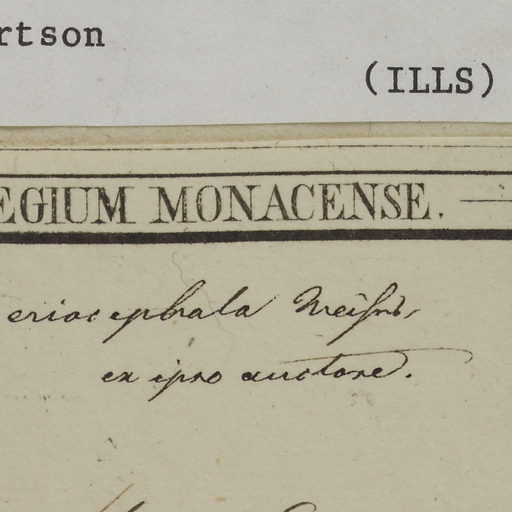 rtson
(ILLS)
EGIUM MONACENSE.
eriocephala Meisn.
ex ipso auctore.